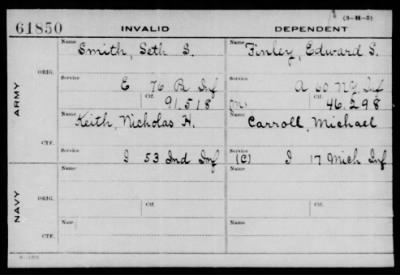 (3-H-5)
61850 INVALID DEPENDENT
Name Smith, Seth S. Name Finley, Edward S.
ARMY
ORIG. Service E 76 Inf Service A 60 NY Inf
Ctf. 91.518 (M) Ctf. 46.298
Name Keith, Nicholas H. Name Carroll, Michael
CTF. Service I 53 Ind Inf Service (C) I 17 Mich Inf
NAVY
Name Name
ORIG. Ctf. Ctf.
Name Name
CTF.